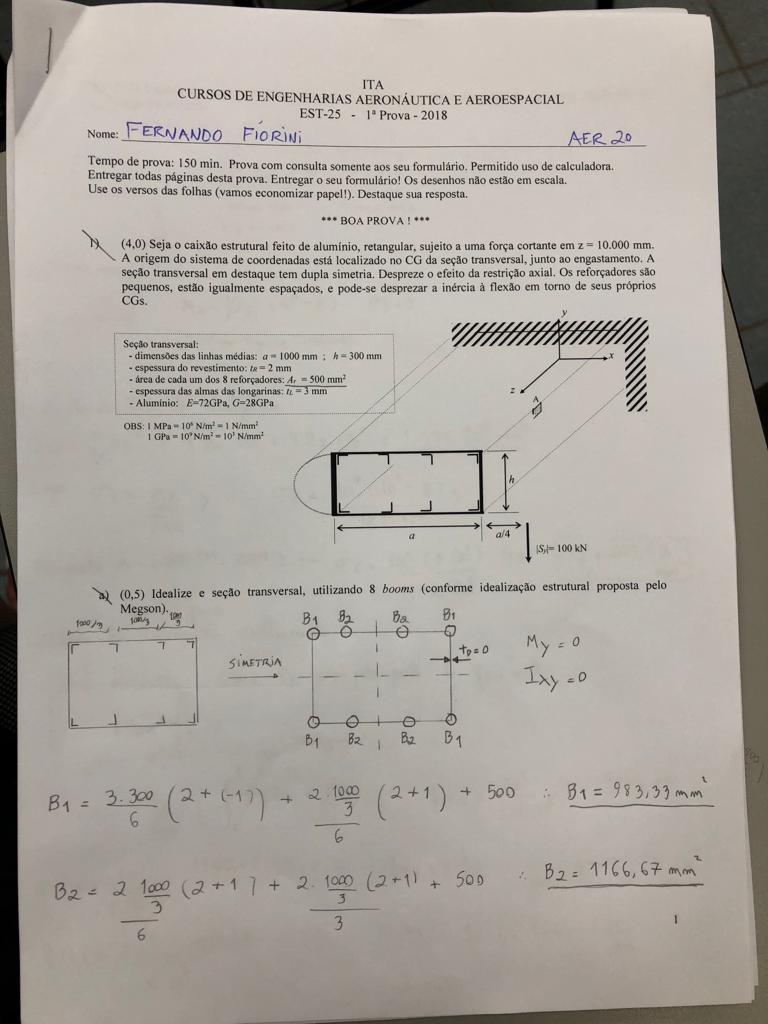 ITA
CURSOS DE ENGENHARIAS AERONÁUTICA E AEROESPACIAL
EST-25 - 1ª Prova - 2018
Nome: FERNANDO FIORINI AER 20
Tempo de prova: 150 min. Prova com consulta somente aos seu formulário. Permitido uso de calculadora.
Entregar todas páginas desta prova. Entregar o seu formulário! Os desenhos não estão em escala.
Use os versos das folhas (vamos economizar papel!). Destaque sua resposta.
*** BOA PROVA ! ***
1) (4,0) Seja o caixão estrutural feito de alumínio, retangular, sujeito a uma força cortante em z = 10.000 mm.
A origem do sistema de coordenadas está localizado no CG da seção transversal, junto ao engastamento. A
seção transversal em destaque tem dupla simetria. Despreze o efeito da restrição axial. Os reforçadores são
pequenos, estão igualmente espaçados, e pode-se desprezar a inércia à flexão em torno de seus próprios
CGs.
Seção transversal:
- dimensões das linhas médias: a = 1000 mm ; h = 300 mm
- espessura do revestimento: tR = 2 mm
- área de cada um dos 8 reforçadores: Ar = 500 mm²
- espessura das almas das longarinas: tL = 3 mm
- Alumínio: E=72GPa, G=28GPa
OBS: 1 MPa = 10⁶ N/m² = 1 N/mm²
1 GPa = 10⁹ N/m² = 10³ N/mm²
y
x
z
A
h
a
a/4
|Sy|= 100 kN
a) (0,5) Idealize e seção transversal, utilizando 8 booms (conforme idealização estrutural proposta pelo
Megson).
1000/3 1000/3 1000/3
SIMETRIA
B1 B2 B2 B1
tD=0
B1 B2 B2 B1
My = 0
Ixy = 0
B1 = 3.300/6 (2 + (-1)) + 2.1000/3/6 (2+1) + 500 ∴ B1 = 983,33 mm²
B2 = 2 1000/3/6 (2+1) + 2.1000/3/3 (2+1) + 500 ∴ B2 = 1166,67 mm²
1